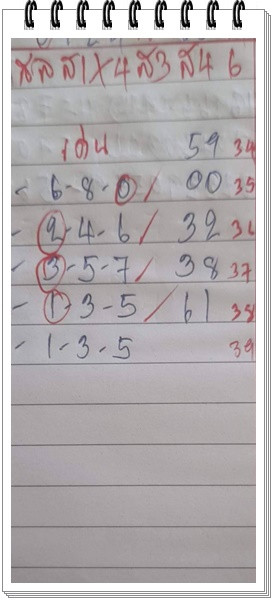 สลส1X4ส3ส4 6
เด่น 59 34
- 6-8-0/ 00 35
- 2-4-6/ 32 36
- 3-5-7/ 38 37
- 1-3-5/ 61 38
- 1-3-5 39